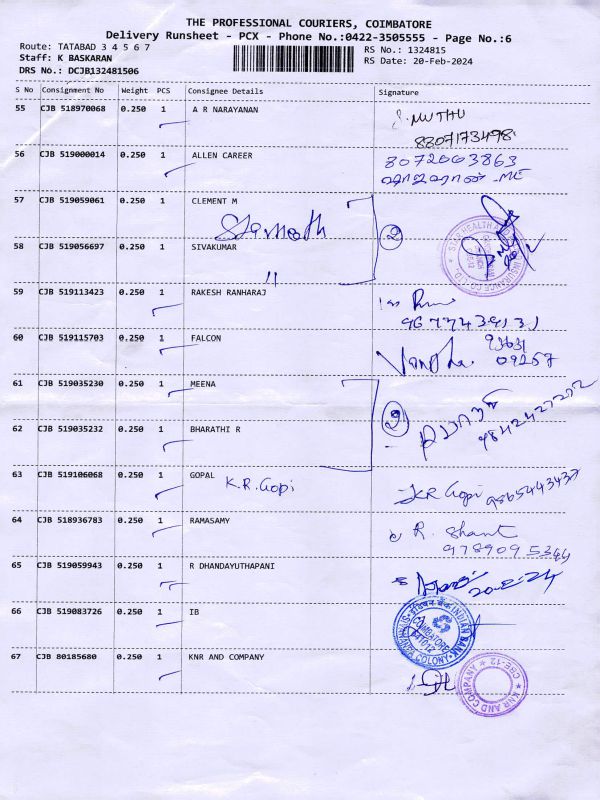 THE PROFESSIONAL COURIERS, COIMBATORE
Delivery Runsheet - PCX - Phone No.:0422-3505555 - Page No.:6
Route: TATABAD 3 4 5 6 7
RS No.: 1324815
Staff: K BASKARAN
RS Date: 20-Feb-2024
DRS No.: DCJB132481506
S No Consignment No Weight PCS Consignee Details Signature
55 CJB 518970068 0.250 1 A R NARAYANAN
S. MUTHU
8807173498
56 CJB 519000014 0.250 1 ALLEN CAREER
8072003863
57 CJB 519059061 0.250 1 CLEMENT M
2
58 CJB 519056697 0.250 1 SIVAKUMAR
"
59 CJB 519113423 0.250 1 RAKESH RANHARAJ
60 CJB 519115703 0.250 1 FALCON
09257
61 CJB 519035230 0.250 1 MEENA
2
9842427272
62 CJB 519035232 0.250 1 BHARATHI R
63 CJB 519106068 0.250 1 GOPAL
K.R.Gopi
KR Gopi
64 CJB 518936783 0.250 1 RAMASAMY
R. Shant
9789095344
65 CJB 519059943 0.250 1 R DHANDAYUTHAPANI
20-2-24
66 CJB 519083726 0.250 1 IB
INDIAN BANK
COIMBATORE
641012
COLONY
67 CJB 80185680 0.250 1 KNR AND COMPANY
KNR AND COMPANY
CBE-12